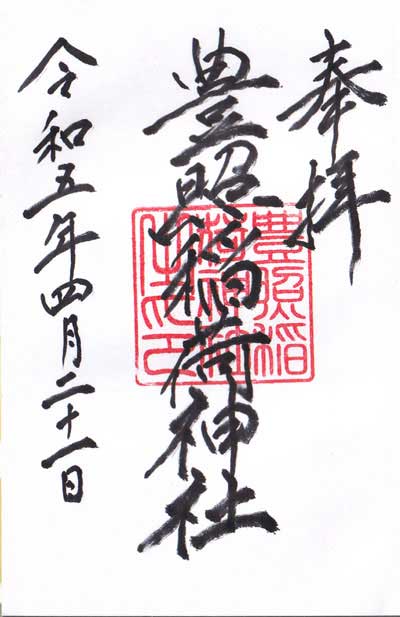 奉拝
豊照稲荷神社
豊照稲
荷神社
之印
令和五年四月二十一日